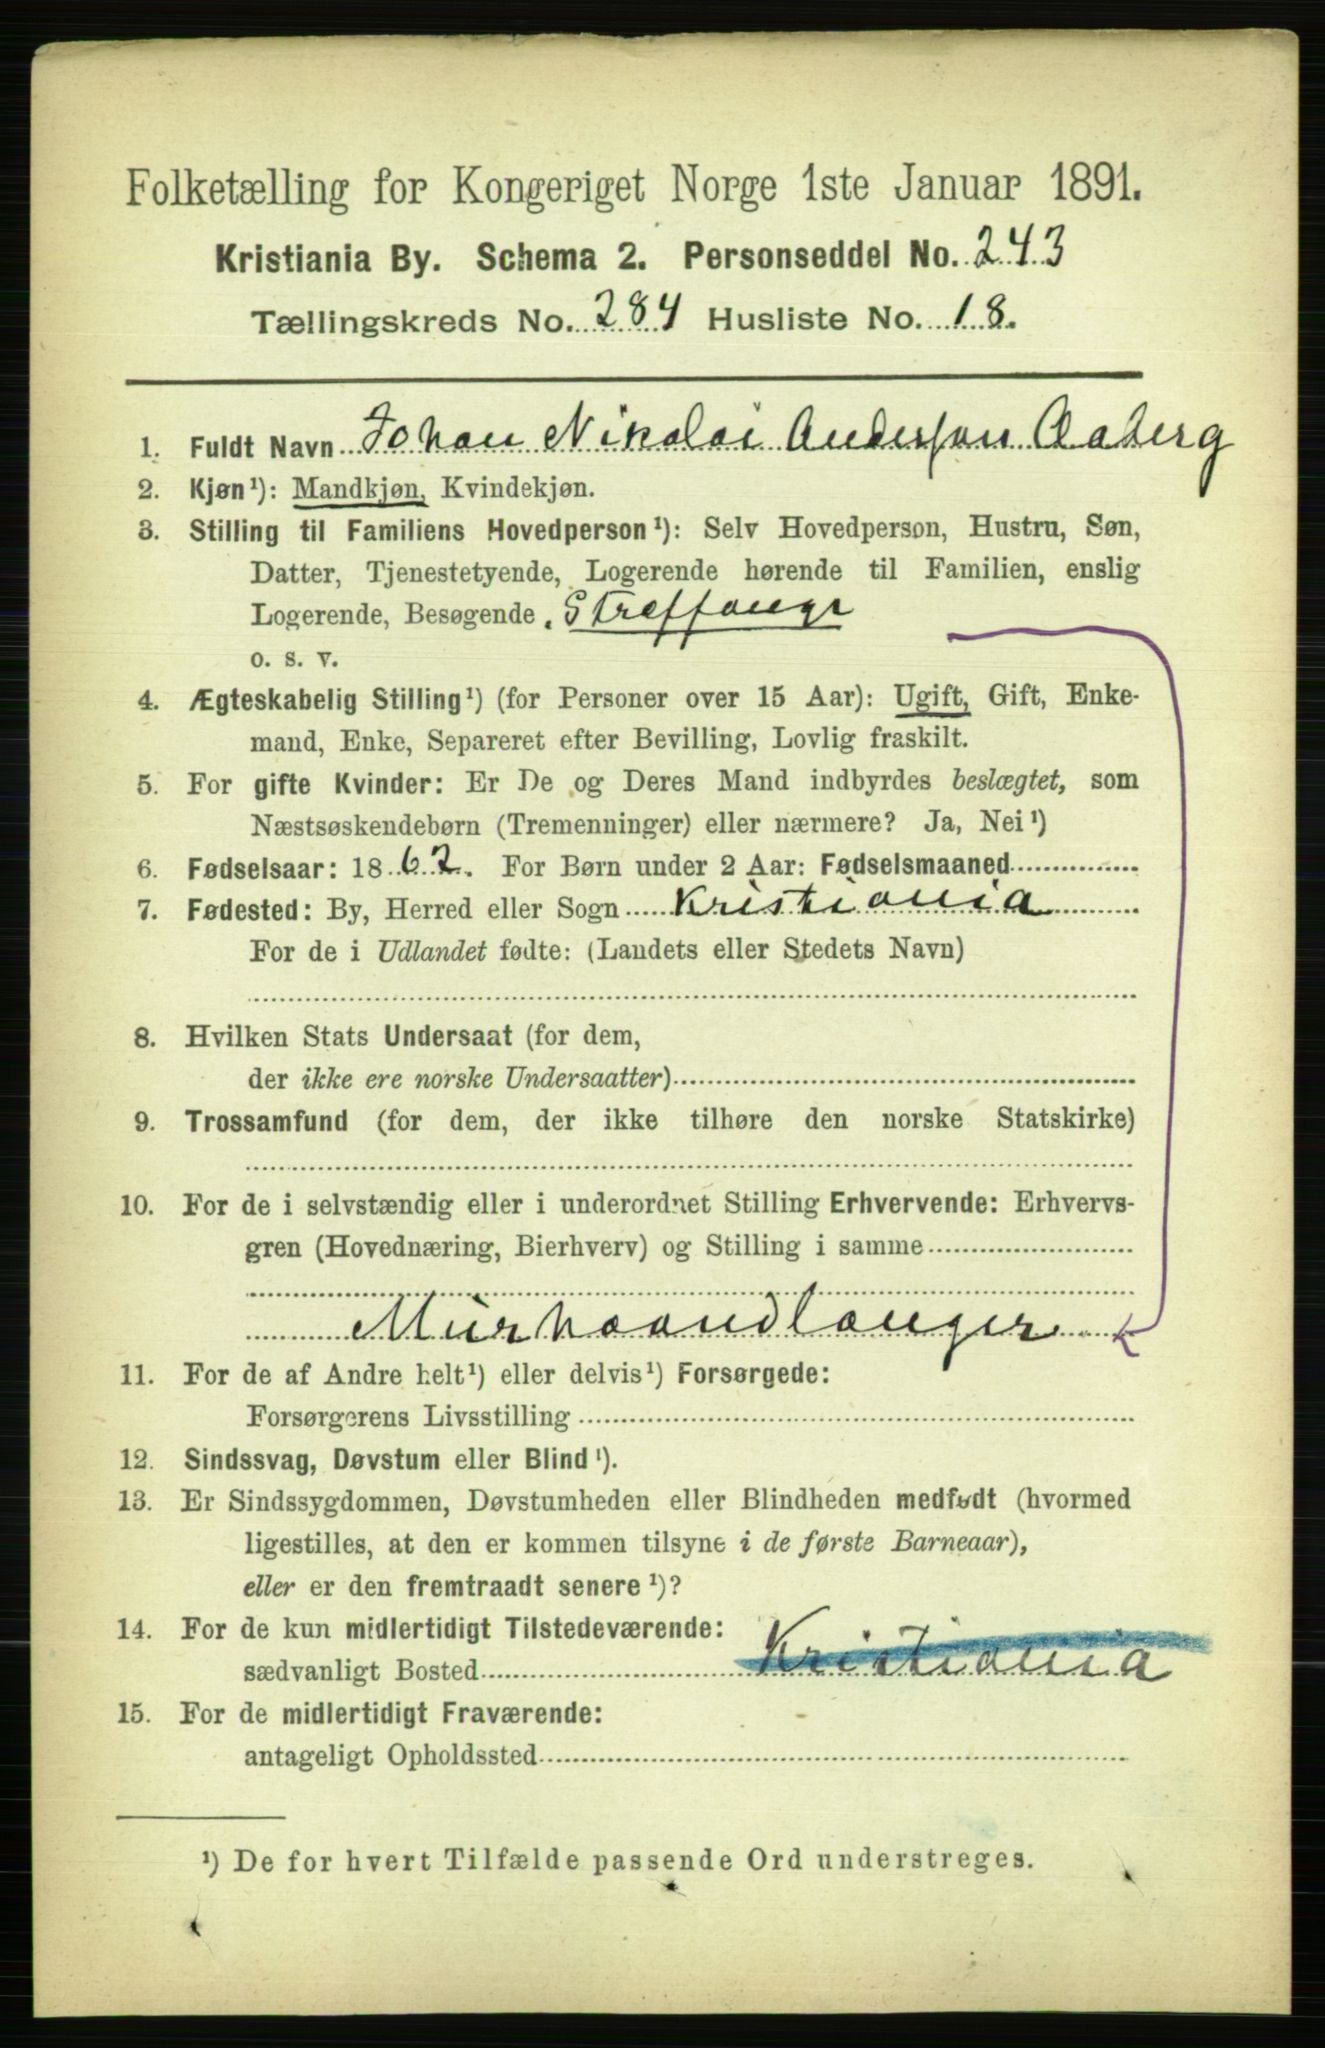 Folketælling for Kongeriget Norge 1ste Januar 1891.
Kristiania By. Schema 2. Personseddel No. 243
Tællingskreds No. 284 Husliste No. 18.
1. Fuldt Navn Johan Nikolai Anderssen Aaberg
2. Kjøn¹): Mandkjøn, Kvindekjøn.
3. Stilling til Familiens Hovedperson¹): Selv Hovedperson, Hustru, Søn,
Datter, Tjenestetyende, Logerende hørende til Familien, enslig
Logerende, Besøgende, Straffange
o. s. v.
4. Ægteskabelig Stilling¹) (for Personer over 15 Aar): Ugift, Gift, Enke-
mand, Enke, Separeret efter Bevilling, Lovlig fraskilt.
5. For gifte Kvinder: Er De og Deres Mand indbyrdes beslægtet, som
Næstsøskendebørn (Tremenninger) eller nærmere? Ja, Nei¹)
6. Fødselsaar: 1862. For Børn under 2 Aar: Fødselsmaaned
7. Fødested: By, Herred eller Sogn Kristiania
For de i Udlandet fødte: (Landets eller Stedets Navn)
8. Hvilken Stats Undersaat (for dem,
der ikke ere norske Undersaatter)
9. Trossamfund (for dem, der ikke tilhøre den norske Statskirke)
10. For de i selvstændig eller i underordnet Stilling Erhvervende: Erhvervs-
gren (Hovednæring, Bierhverv) og Stilling i samme
Murhaandlanger
11. For de af Andre helt¹) eller delvis¹) Forsørgede:
Forsørgerens Livsstilling
12. Sindssvag, Døvstum eller Blind¹).
13. Er Sindssygdommen, Døvstumheden eller Blindheden medfødt (hvormed
ligestilles, at den er kommen tilsyne i de første Barneaar),
eller er den fremtraadt senere¹)?
14. For de kun midlertidigt Tilstedeværende:
sædvanligt Bosted Kristiania
15. For de midlertidigt Fraværende:
antageligt Opholdssted
¹) De for hvert Tilfælde passende Ord understreges.